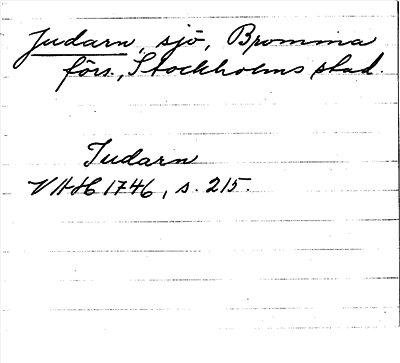 Judarn, sjö, Bromma
förs., Stockholms stad.
Judarn
VAH 1746, s. 215.